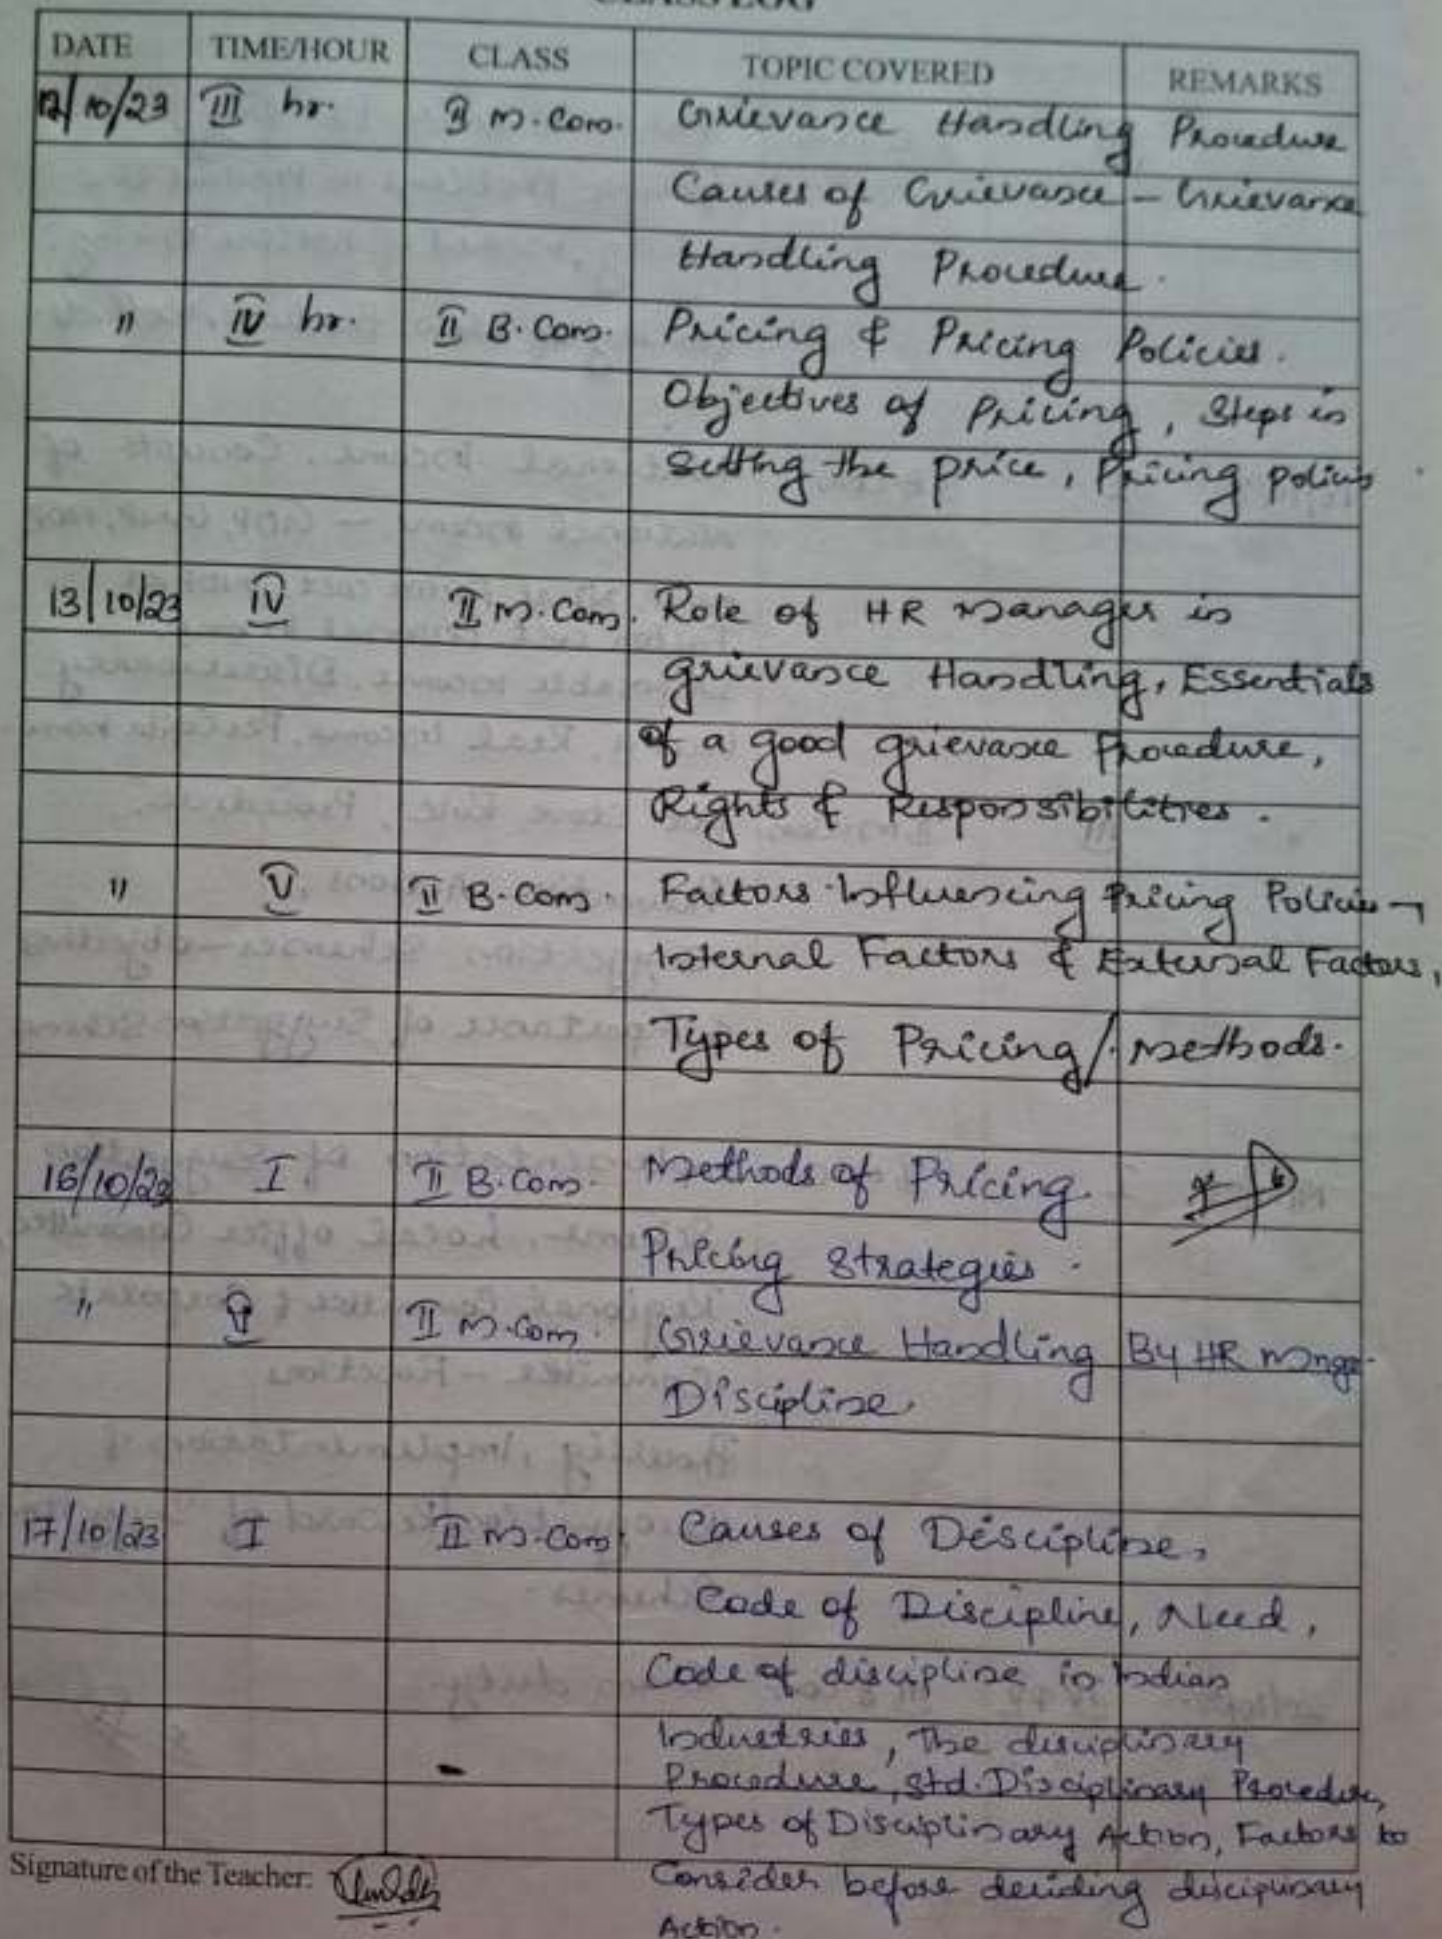 CLASS LOG
DATE TIME/HOUR CLASS TOPIC COVERED REMARKS
12/10/23 III hr. II M.Com. Grievance Handling Procedure
Causes of Grievance – Grievance
Handling Procedure.
" IV hr. II B.Com. Pricing & Pricing Policies.
Objectives of Pricing, Steps in
Setting the price, Pricing policies
13/10/23 IV II M.Com. Role of HR Manager in
grievance Handling, Essentials
of a good grievance Procedure,
Rights & Responsibilities.
" V II B.Com. Factors Influencing Pricing Policies –
Internal Factors & External Factors,
Types of Pricing/Methods.
16/10/23 I II B.Com. Methods of Pricing.
Pricing Strategies.
" II M.Com. Grievance Handling By HR Mngr.
Discipline.
17/10/23 I II M.Com Causes of Discipline,
Code of Discipline, Need,
Code of discipline in Indian
Industries, The disciplinary
Procedure, Std. Disciplinary Procedure,
Types of Disciplinary Action, Factors to
Consider before deciding disciplinary
Action.
Signature of the Teacher: